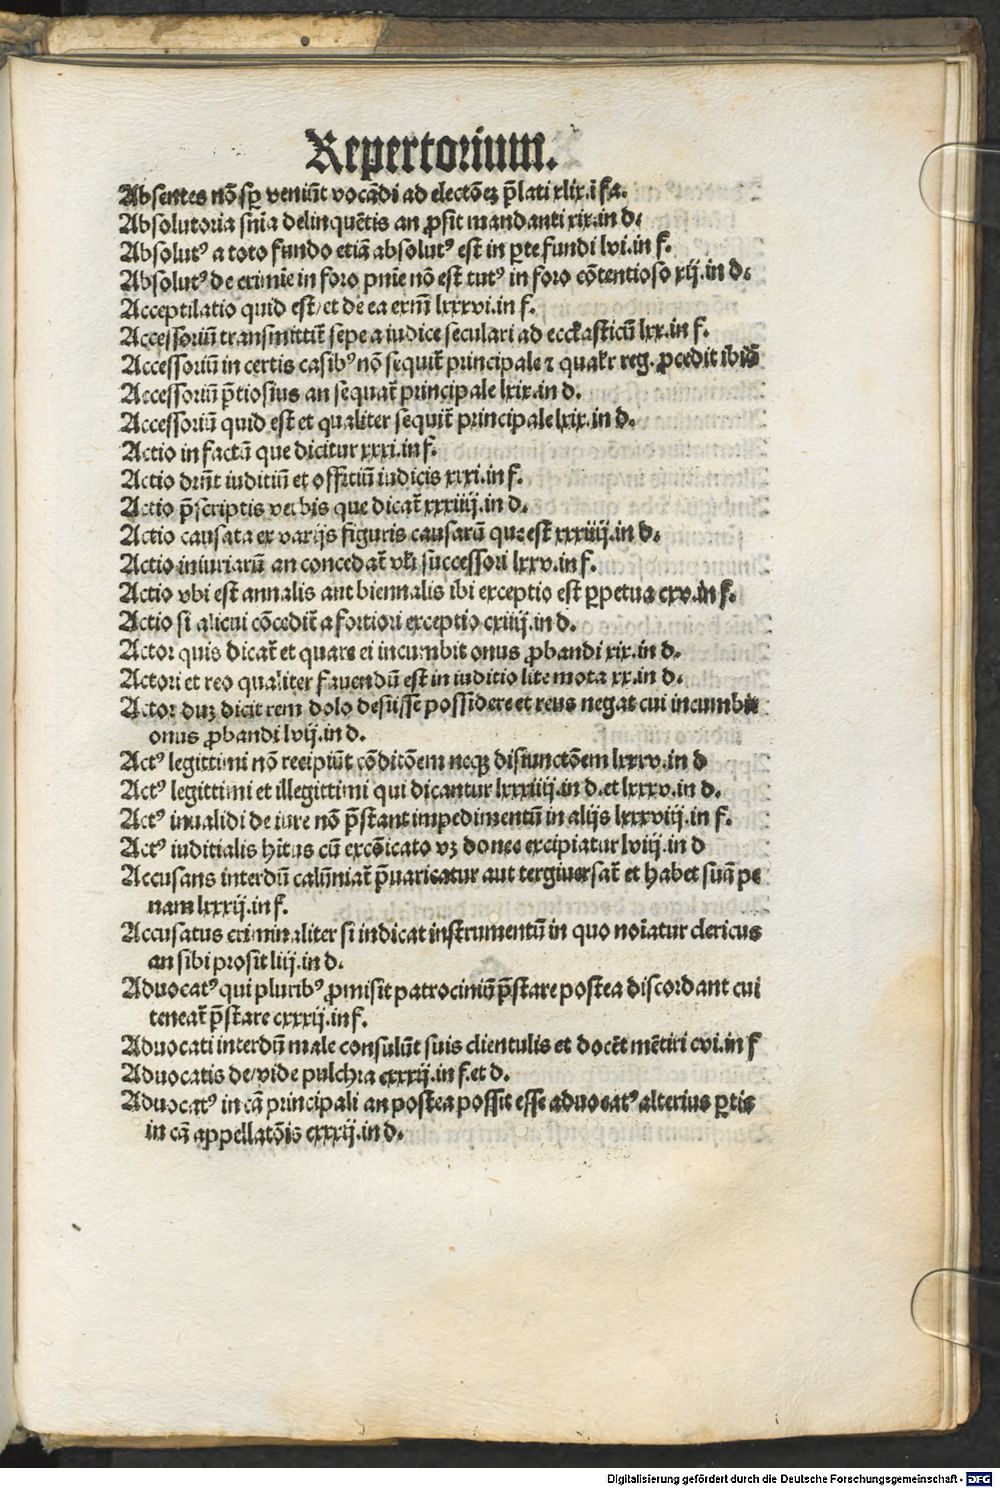 Repertorium.
Absentes nō sꝑ veniūt vocādi ad electōeꝫ p̄lati xlix.i fa.
Absolutoria sn̄ia delinquētis an ꝓsit mandanti xix.in d.
Absolutꝰ a toto fundo etiā absolutꝰ est in ꝑte fundi lvi.in f.
Absolutꝰ de crimīe in foro pnīe nō est tutꝰ in foro cōtentioso xij.in d.
Acceptilatio quid est/et de ea exm̄ lxxxvi.in f.
Accessoriū transmittit̄ sepe a iudice seculari ad ecclasticū lxx.in f.
Accessoriū in certis casibꝰ nō sequit̄ principale ⁊ qualr reg. ꝓcedit ibidē
Accessoriū p̄tiosius an sequat̄ principale lxix.in d.
Accessoriū quid est et qualiter sequit̄ principale lxix.in d.
Actio in factū que dicitur xxxi.in f.
Actio drn̄t iuditiū et offitiū iudicis xxxi.in f.
Actio p̄scriptis verbis que dicat̄ xxxiiij.in d.
Actio causata ex varijs figuris causarū que est xxxiiij.in d.
Actio iniuriarū an concedat̄ vl̄i successori lxxv.in f.
Actio vbi est annalis aut biennalis ibi exceptio est ꝑpetua cxv.in f.
Actio si alicui cōcedit̄ a fortiori exceptio cxiiij.in d.
Actor quis dicat̄ et quare ei incumbit onus ꝓbandi xix.in d.
Actori et reo qualiter fauendū est in iuditio lite mota xx.in d.
Actor duꝫ dicit rem dolo desiisse possidere et reus negat cui incumbit
onus ꝓbandi lvij.in d.
Actꝰ legittimi nō recipiūt cōditōem neqꝫ disiunctōem lxxxv.in d
Actꝰ legittimi et illegittimi qui dicantur lxxxiiij.in d.et lxxxv.in d.
Actꝰ inualidi de iure nō p̄stant impedimentū in alijs lxxxviij.in f.
Actꝰ iuditialis hitus cū excōicato vꝫ donec excipiatur lviij.in d
Accusans interdū calūniat̄ p̄uaricatur aut tergiuersat̄ et habet suā pe
nam lxxxij.in f.
Accusatus criminaliter si indicat instrumentū in quo noīatur clericus
an sibi prosit liij.in d.
Aduocatꝰ qui pluribꝰ ꝓmisit patrociniū p̄stare postea discordant cui
teneat̄ p̄stare cxxxij.in f.
Aduocati interdū male consulūt suis clientulis et docēt mētiri cvi.in f
Aduocatis de/vide pulchra cxxxij.in f.et d.
Aduocatꝰ in cā principali an postea possit esse aduocatꝰ alterius ꝑtis
in cā appellatōis cxxxij.in d.
Digitalisierung gefördert durch die Deutsche Forschungsgemeinschaft - DFG